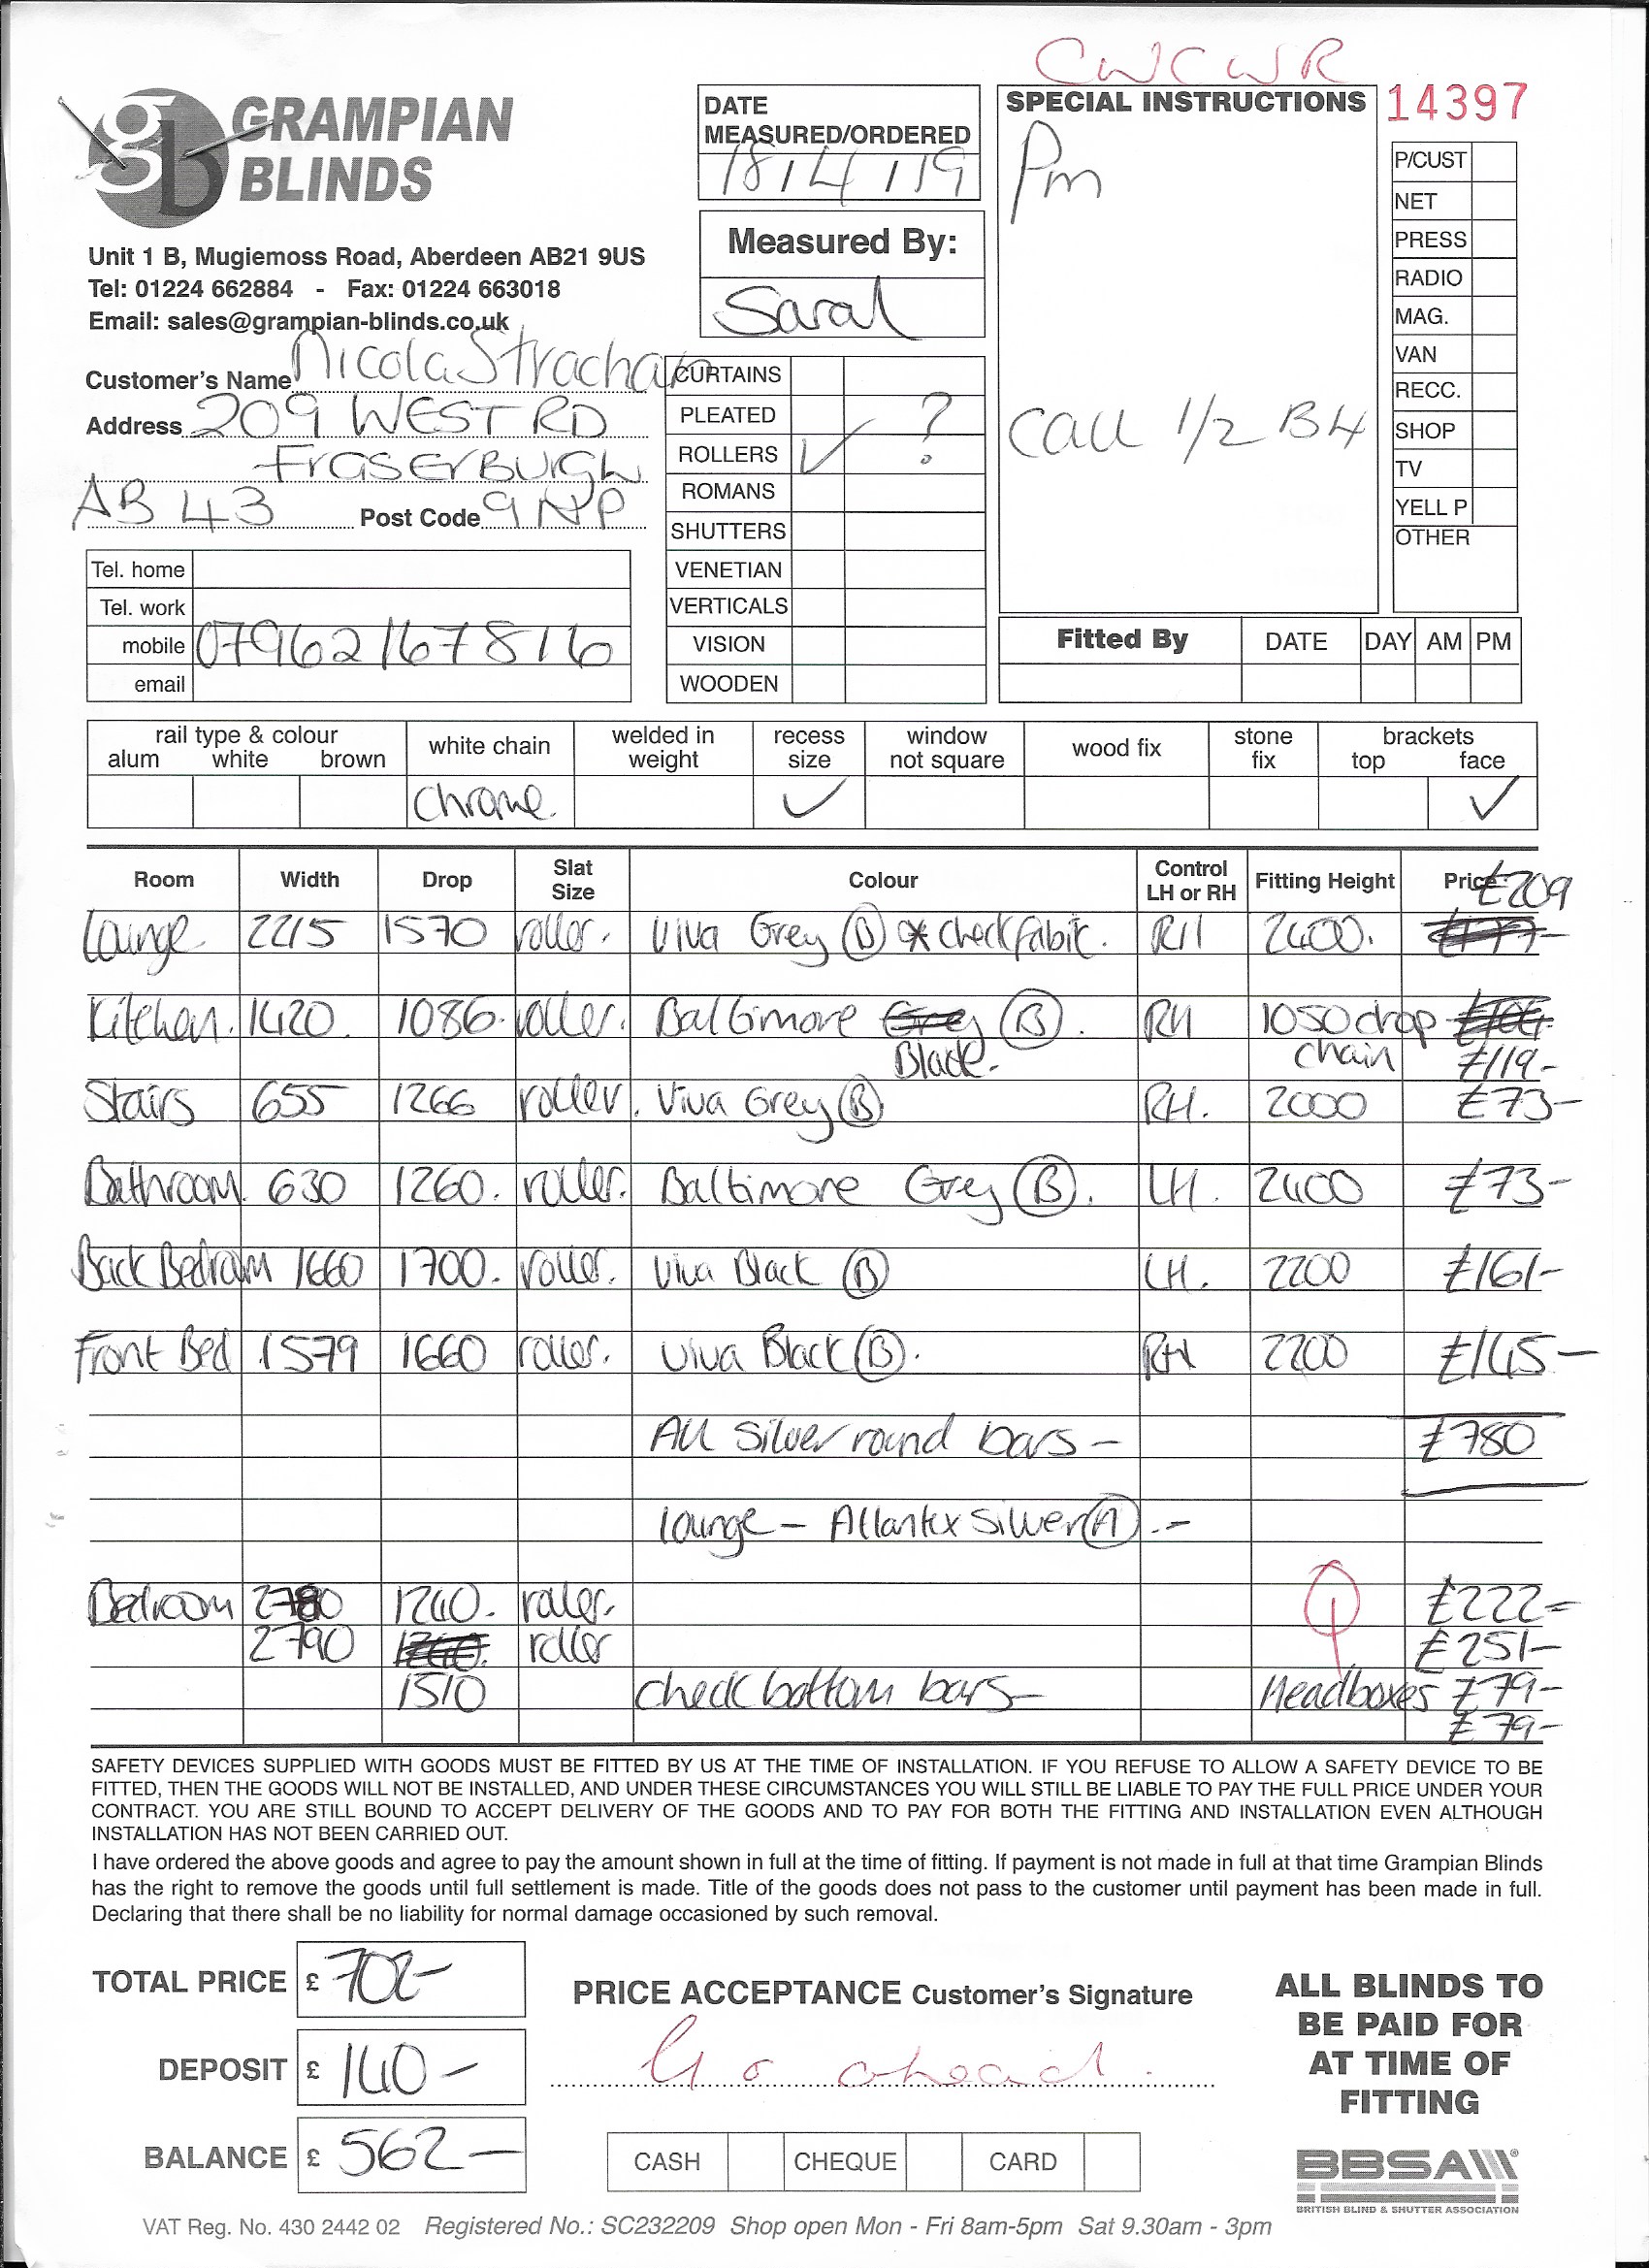 CWCWR
GRAMPIAN
BLINDS
Unit 1 B, Mugiemoss Road, Aberdeen AB21 9US
Tel: 01224 662884 - Fax: 01224 663018
Email: sales@grampian-blinds.co.uk
Customer's Name Nicola Strachan
Address 209 WEST RD
FraserBURGH
AB 43 Post Code 9NP
Tel. home
Tel. work
mobile 07962167816
email
DATE
MEASURED/ORDERED
18/4/19
Measured By:
Sarah
CURTAINS
PLEATED ?
ROLLERS ✓
ROMANS
SHUTTERS
VENETIAN
VERTICALS
VISION
WOODEN
SPECIAL INSTRUCTIONS
Pm
Call 1/2 B4
14397
P/CUST
NET
PRESS
RADIO
MAG.
VAN
RECC.
SHOP
TV
YELL P
OTHER
Fitted By DATE DAY AM PM
rail type & colour white chain welded in weight recess size window not square wood fix stone fix brackets
alum white brown top face
Chrome. ✓ ✓
Room Width Drop Slat Size Colour Control LH or RH Fitting Height Price £209
Lounge 2215 1570 roller. Viva Grey (B) * check fabic. RH 2400.
Kitchen. 1420. 1086. roller. Baltimore Grey (B). RH 1050 drop
Black. chain £119-
Stairs 655 1266 roller. Viva Grey (B) RH. 2000 £73-
Bathroom. 630 1260. roller. Baltimore Grey (B). LH. 2400 £73-
Back Bedroom 1660 1700. roller. Viva Black (B) LH. 2200 £161-
Front Bed 1579 1660 roller. Viva Black (B). RH 2200 £145-
All Silver round bars - £780
Lounge - Atlantex Silver (A).-
Bedroom 2780 1240. roller. £222-
2790 1260. roller £251-
1510 check bottom bars- Headboxes £79-
£79-
SAFETY DEVICES SUPPLIED WITH GOODS MUST BE FITTED BY US AT THE TIME OF INSTALLATION. IF YOU REFUSE TO ALLOW A SAFETY DEVICE TO BE
FITTED, THEN THE GOODS WILL NOT BE INSTALLED, AND UNDER THESE CIRCUMSTANCES YOU WILL STILL BE LIABLE TO PAY THE FULL PRICE UNDER YOUR
CONTRACT. YOU ARE STILL BOUND TO ACCEPT DELIVERY OF THE GOODS AND TO PAY FOR BOTH THE FITTING AND INSTALLATION EVEN ALTHOUGH
INSTALLATION HAS NOT BEEN CARRIED OUT.
I have ordered the above goods and agree to pay the amount shown in full at the time of fitting. If payment is not made in full at that time Grampian Blinds
has the right to remove the goods until full settlement is made. Title of the goods does not pass to the customer until payment has been made in full.
Declaring that there shall be no liability for normal damage occasioned by such removal.
TOTAL PRICE £ 702-
DEPOSIT £ 140-
BALANCE £ 562-
PRICE ACCEPTANCE Customer's Signature
Go ahead.
CASH CHEQUE CARD
ALL BLINDS TO
BE PAID FOR
AT TIME OF
FITTING
BBSA
BRITISH BLIND & SHUTTER ASSOCIATION
VAT Reg. No. 430 2442 02 Registered No.: SC232209 Shop open Mon - Fri 8am-5pm Sat 9.30am - 3pm